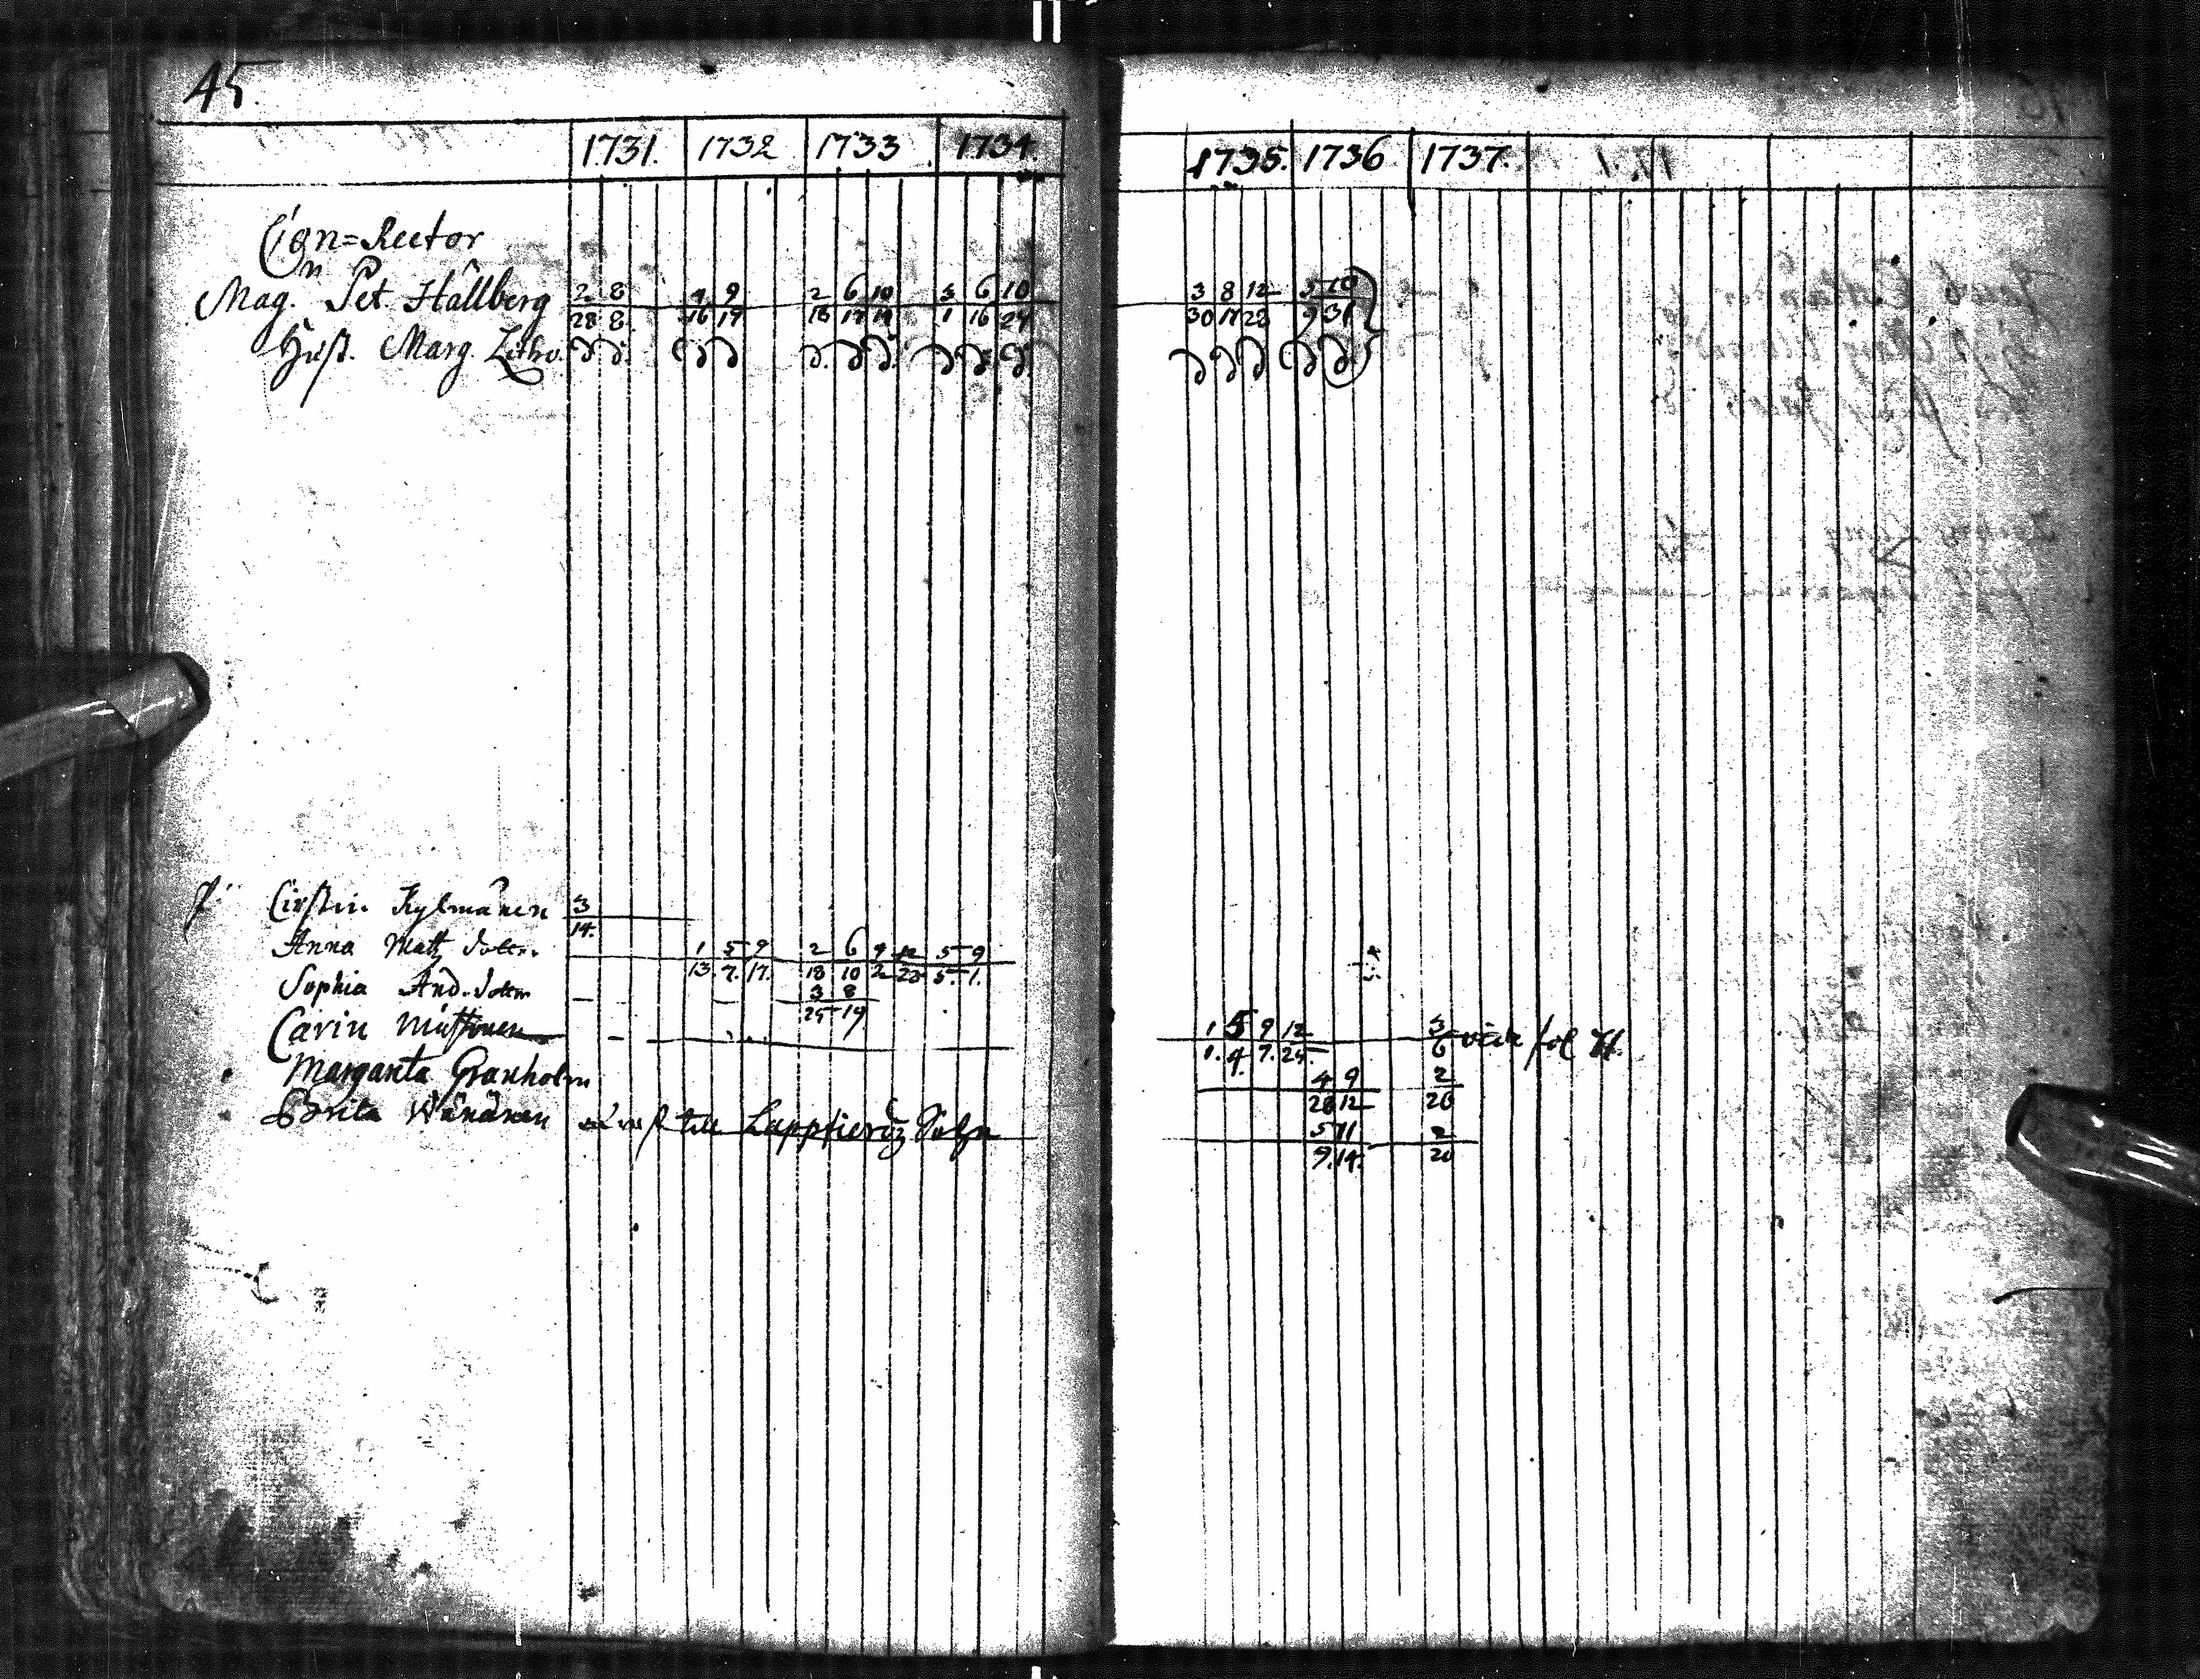 45.
1731. 1732 1733 1734. 1735. 1736 1737.
Con=Rector
Mag. Pet. Hållberg 2 8 4 9 2 6 10 3 6 10 3 8 12 5 10
28 8 16 19 18 17 19 1 16 24 30 17 28 9 31
Hust. Marg. D D D D D D D D D D D D D D D
P. Cirstin Kylmänen 3
14.
Anna Matz dotter 1 5 9 2 6 9 12 5 9
13. 7. 17. 18 10 2 23 5. 1.
Sophia And. dotter 3 8
25 19
Carin 1 5 9 12 3 vide fol
1. 4. 7. 24. 6
Margareta Granholm 4 9 2
20 12 20
Brita Wänänen till Lappfierdz Sokn 5 11 2
9. 14. 20